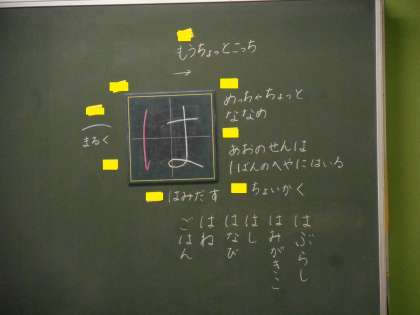 もうちょっとこっち
→
めっちゃちょっと
ななめ
まるく
は
あおのせんは
1ばんのへやにはいる
はみだす
ちょいかく
はぶらし
はみがきこ
はし
はなび
はね
ごはん